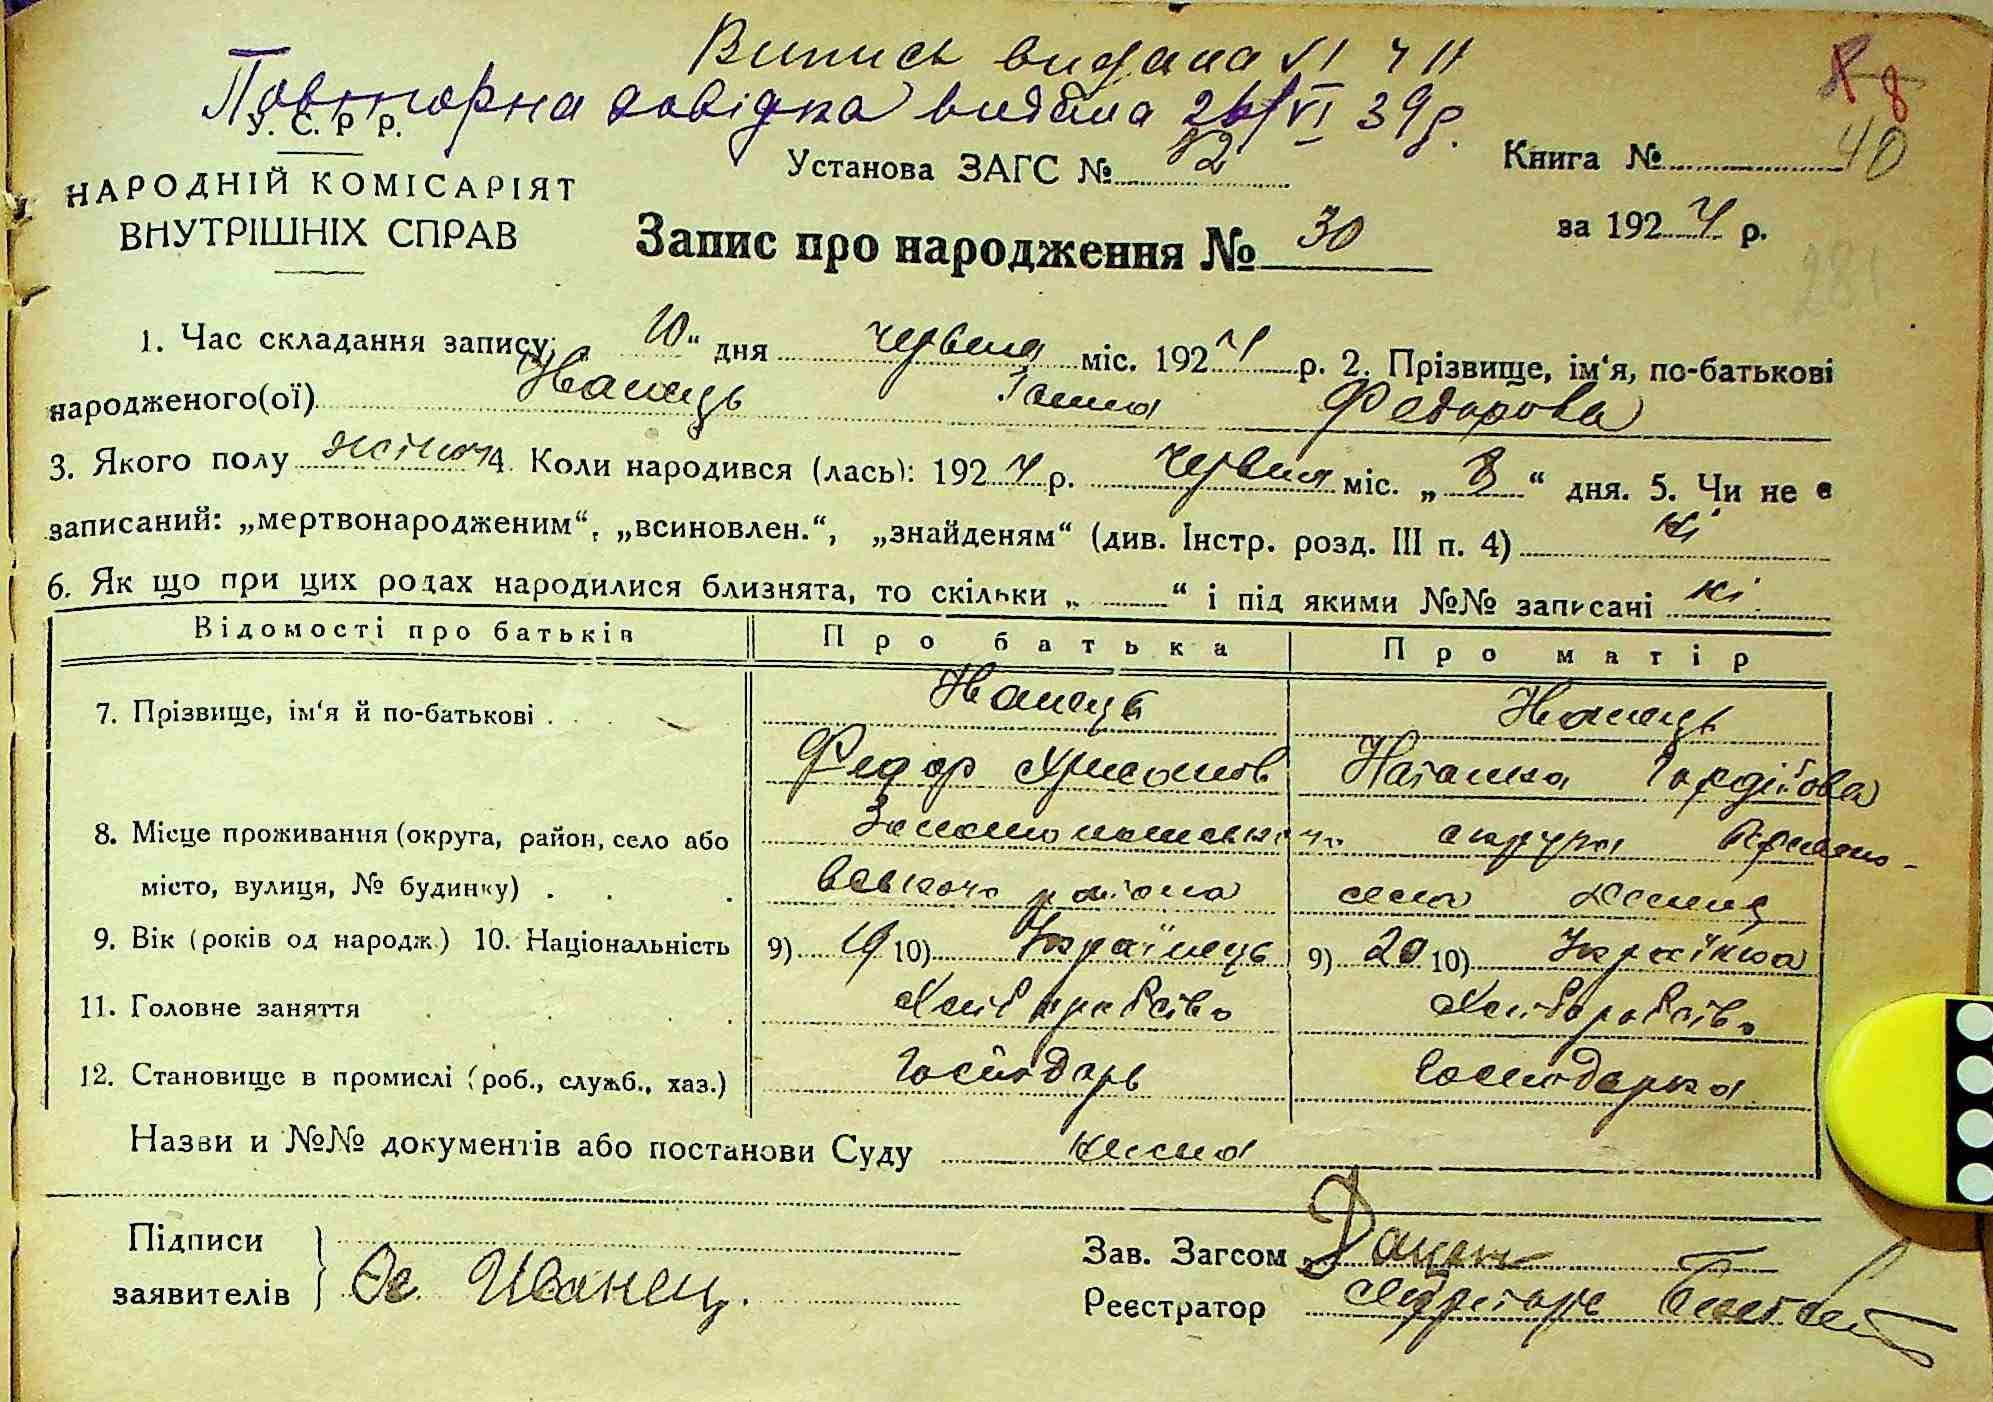 Випись видана VI 4 II
Повторна довідка видана 26/VI 39р.
У. С. Р Р.
НАРОДНІЙ КОМІСАРІЯТ
ВНУТРІШНІХ СПРАВ
Установа ЗАГС № 12
Книга № 40
Запис про народження № 30
за 1924 р.
1. Час складання запису: 10“ дня червня міс. 1924 р. 2. Прізвище, ім‘я, по-батькові
народженого(ої) Иванець Ганна Федорова
3. Якого полу жіноч 4. Коли народився (лась): 1924 р. червня міс. „ 8 “ дня. 5. Чи не є
записаний: „мертвонародженим“, „всиновлен.“, „знайденям“ (див. Інстр. розд. III п. 4) ні
6. Як що при цих родах народилися близнята, то скільки „ “ і під якими №№ записані ні
Відомості про батьків Про батька Про матір
7. Прізвище, ім‘я й по-батькові Иванець Иванець
Федор Хрисанов Наталка Гордієва
8. Місце проживання (округа, район, село або
місто, вулиця, № будинку) району села
9. Вік (років од народж.) 10. Національність 9) 19 10) Українець 9) 20 10) Українка
11. Головне заняття Хліборобство Хліборобство
12. Становище в промислі (роб., служб., хаз.) Господарь Господарка
Назви и №№ документів або постанови Суду нема
Підписи
заявителів Ф. Иванец.
Зав. Загсом
Реєстратор Секретарь